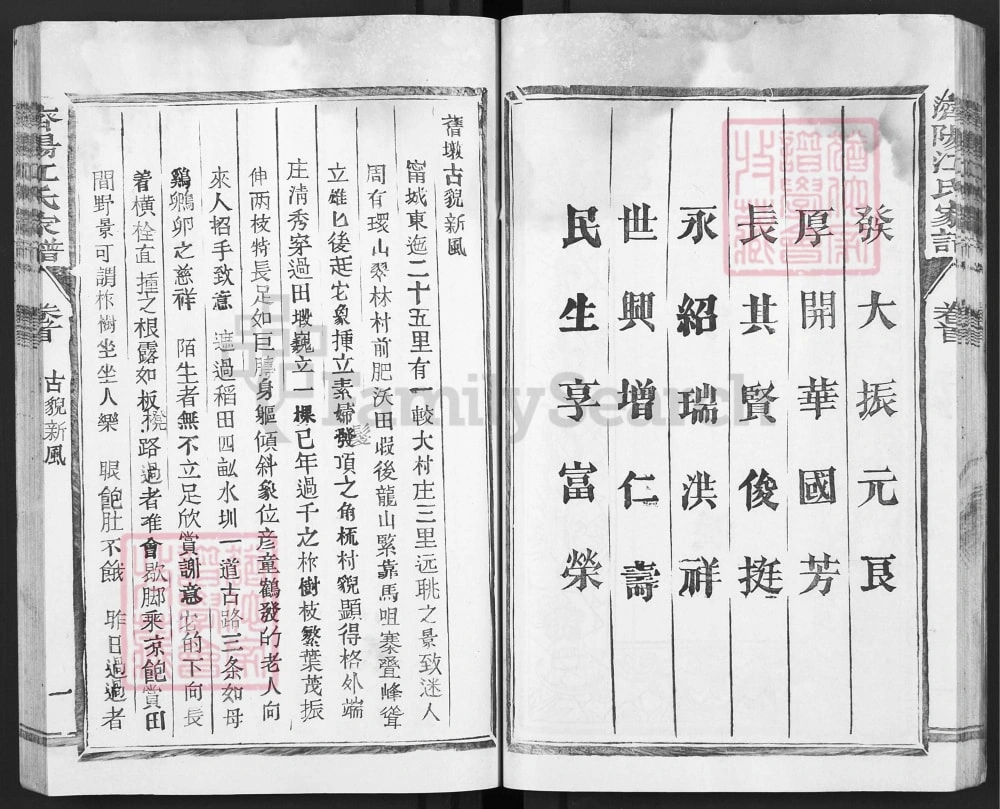 濟陽江氏家譜
卷首
發大振元良
厚開華國芳
長其賢俊挺
永紹瑞洪祥
世興增仁壽
民生亨富榮
舊墩古貌新風
甯城東迤二十五里有一較大村庄三里远眺之景致迷人
周有環山翠林村前肥沃田畈後龍山緊靠馬咀寨叠峰聳
立雄匕後起它象揷立素婦發髮頂之角梳村貌顯得格外端
庄清秀穿過田塅巍立一棵已年過千之柞樹枝繁葉茂振
伸两枝特長足如巨膊身軀傾斜象位彦童鶴發的老人向
來人招手致意 過稻田四畝水圳一道古路三条如母
鷄 卵之慈祥 陌生者無不立足欣賞謝意它的下向長
着橫栓直撞之根露如板櫈路過者准會歇脚乘凉飽賞田
間野景可謂柞樹坐坐人樂 眼飽肚不餓 昨日過過者
濟陽江氏家譜
卷首
古貌新風
一
FamilySearch